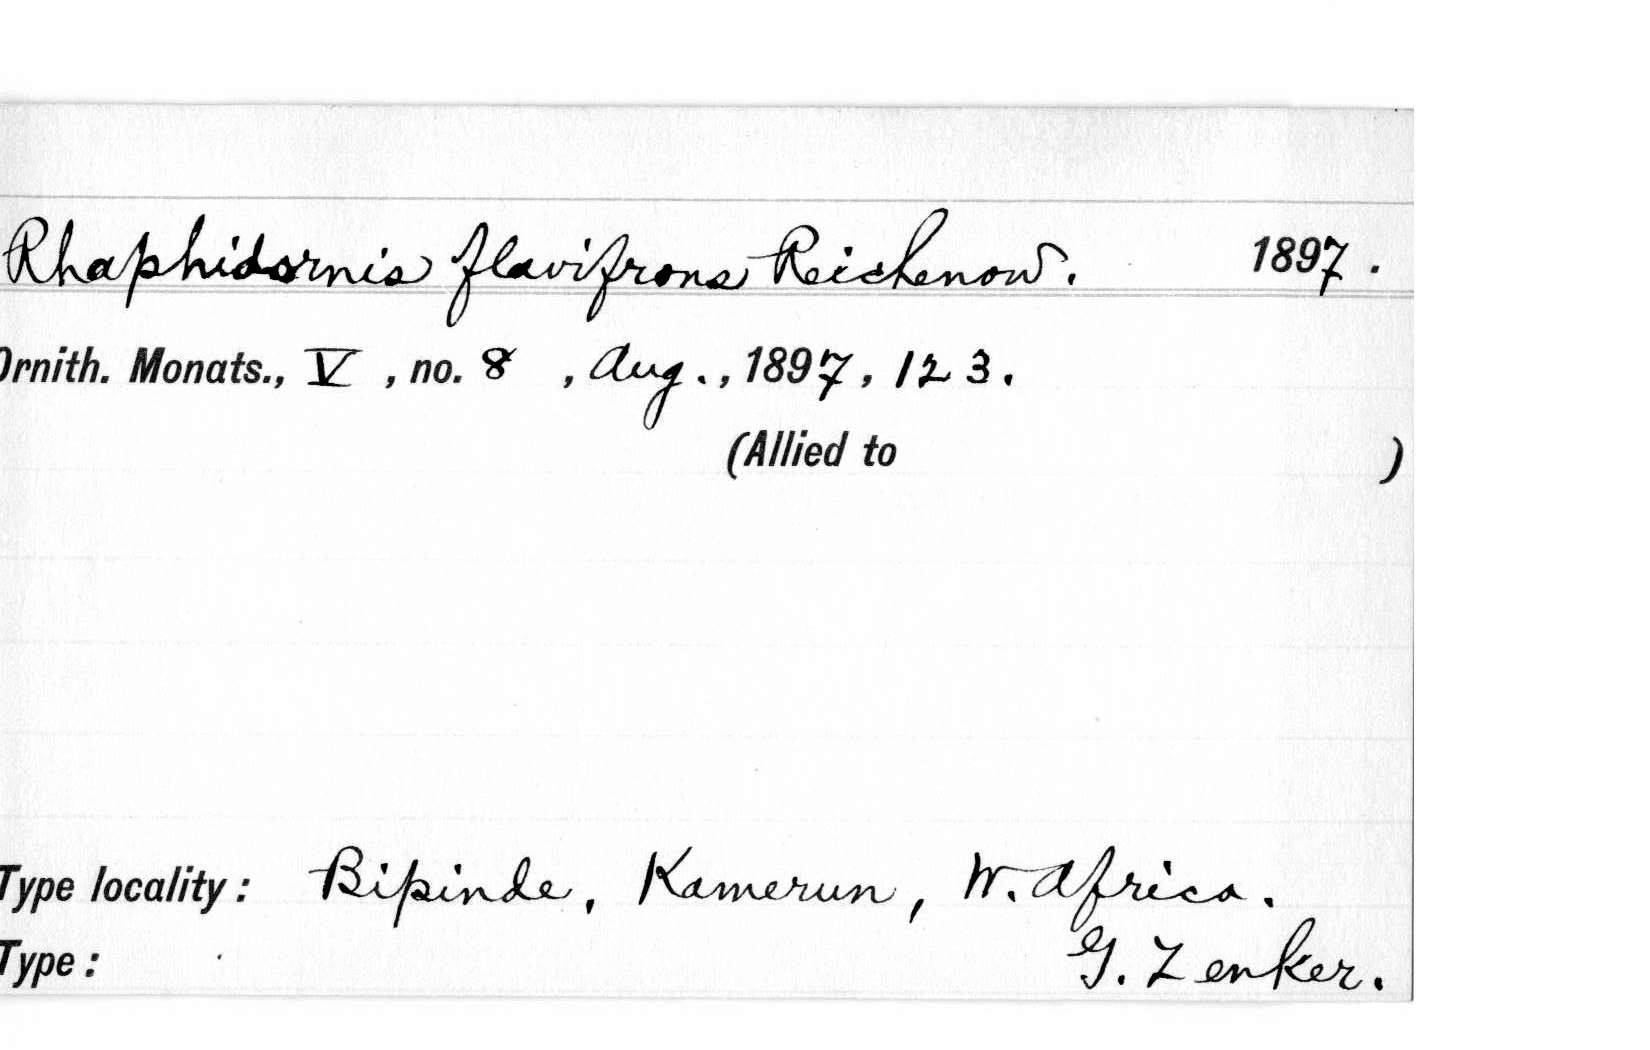 Rhaphidornis flavifrons Reichenow. 1897.
Ornith. Monats., V, no. 8, Aug., 1897, 123.
(Allied to )
Type locality: Bipinde, Kamerun, W. Africa.
Type: G. Zenker.